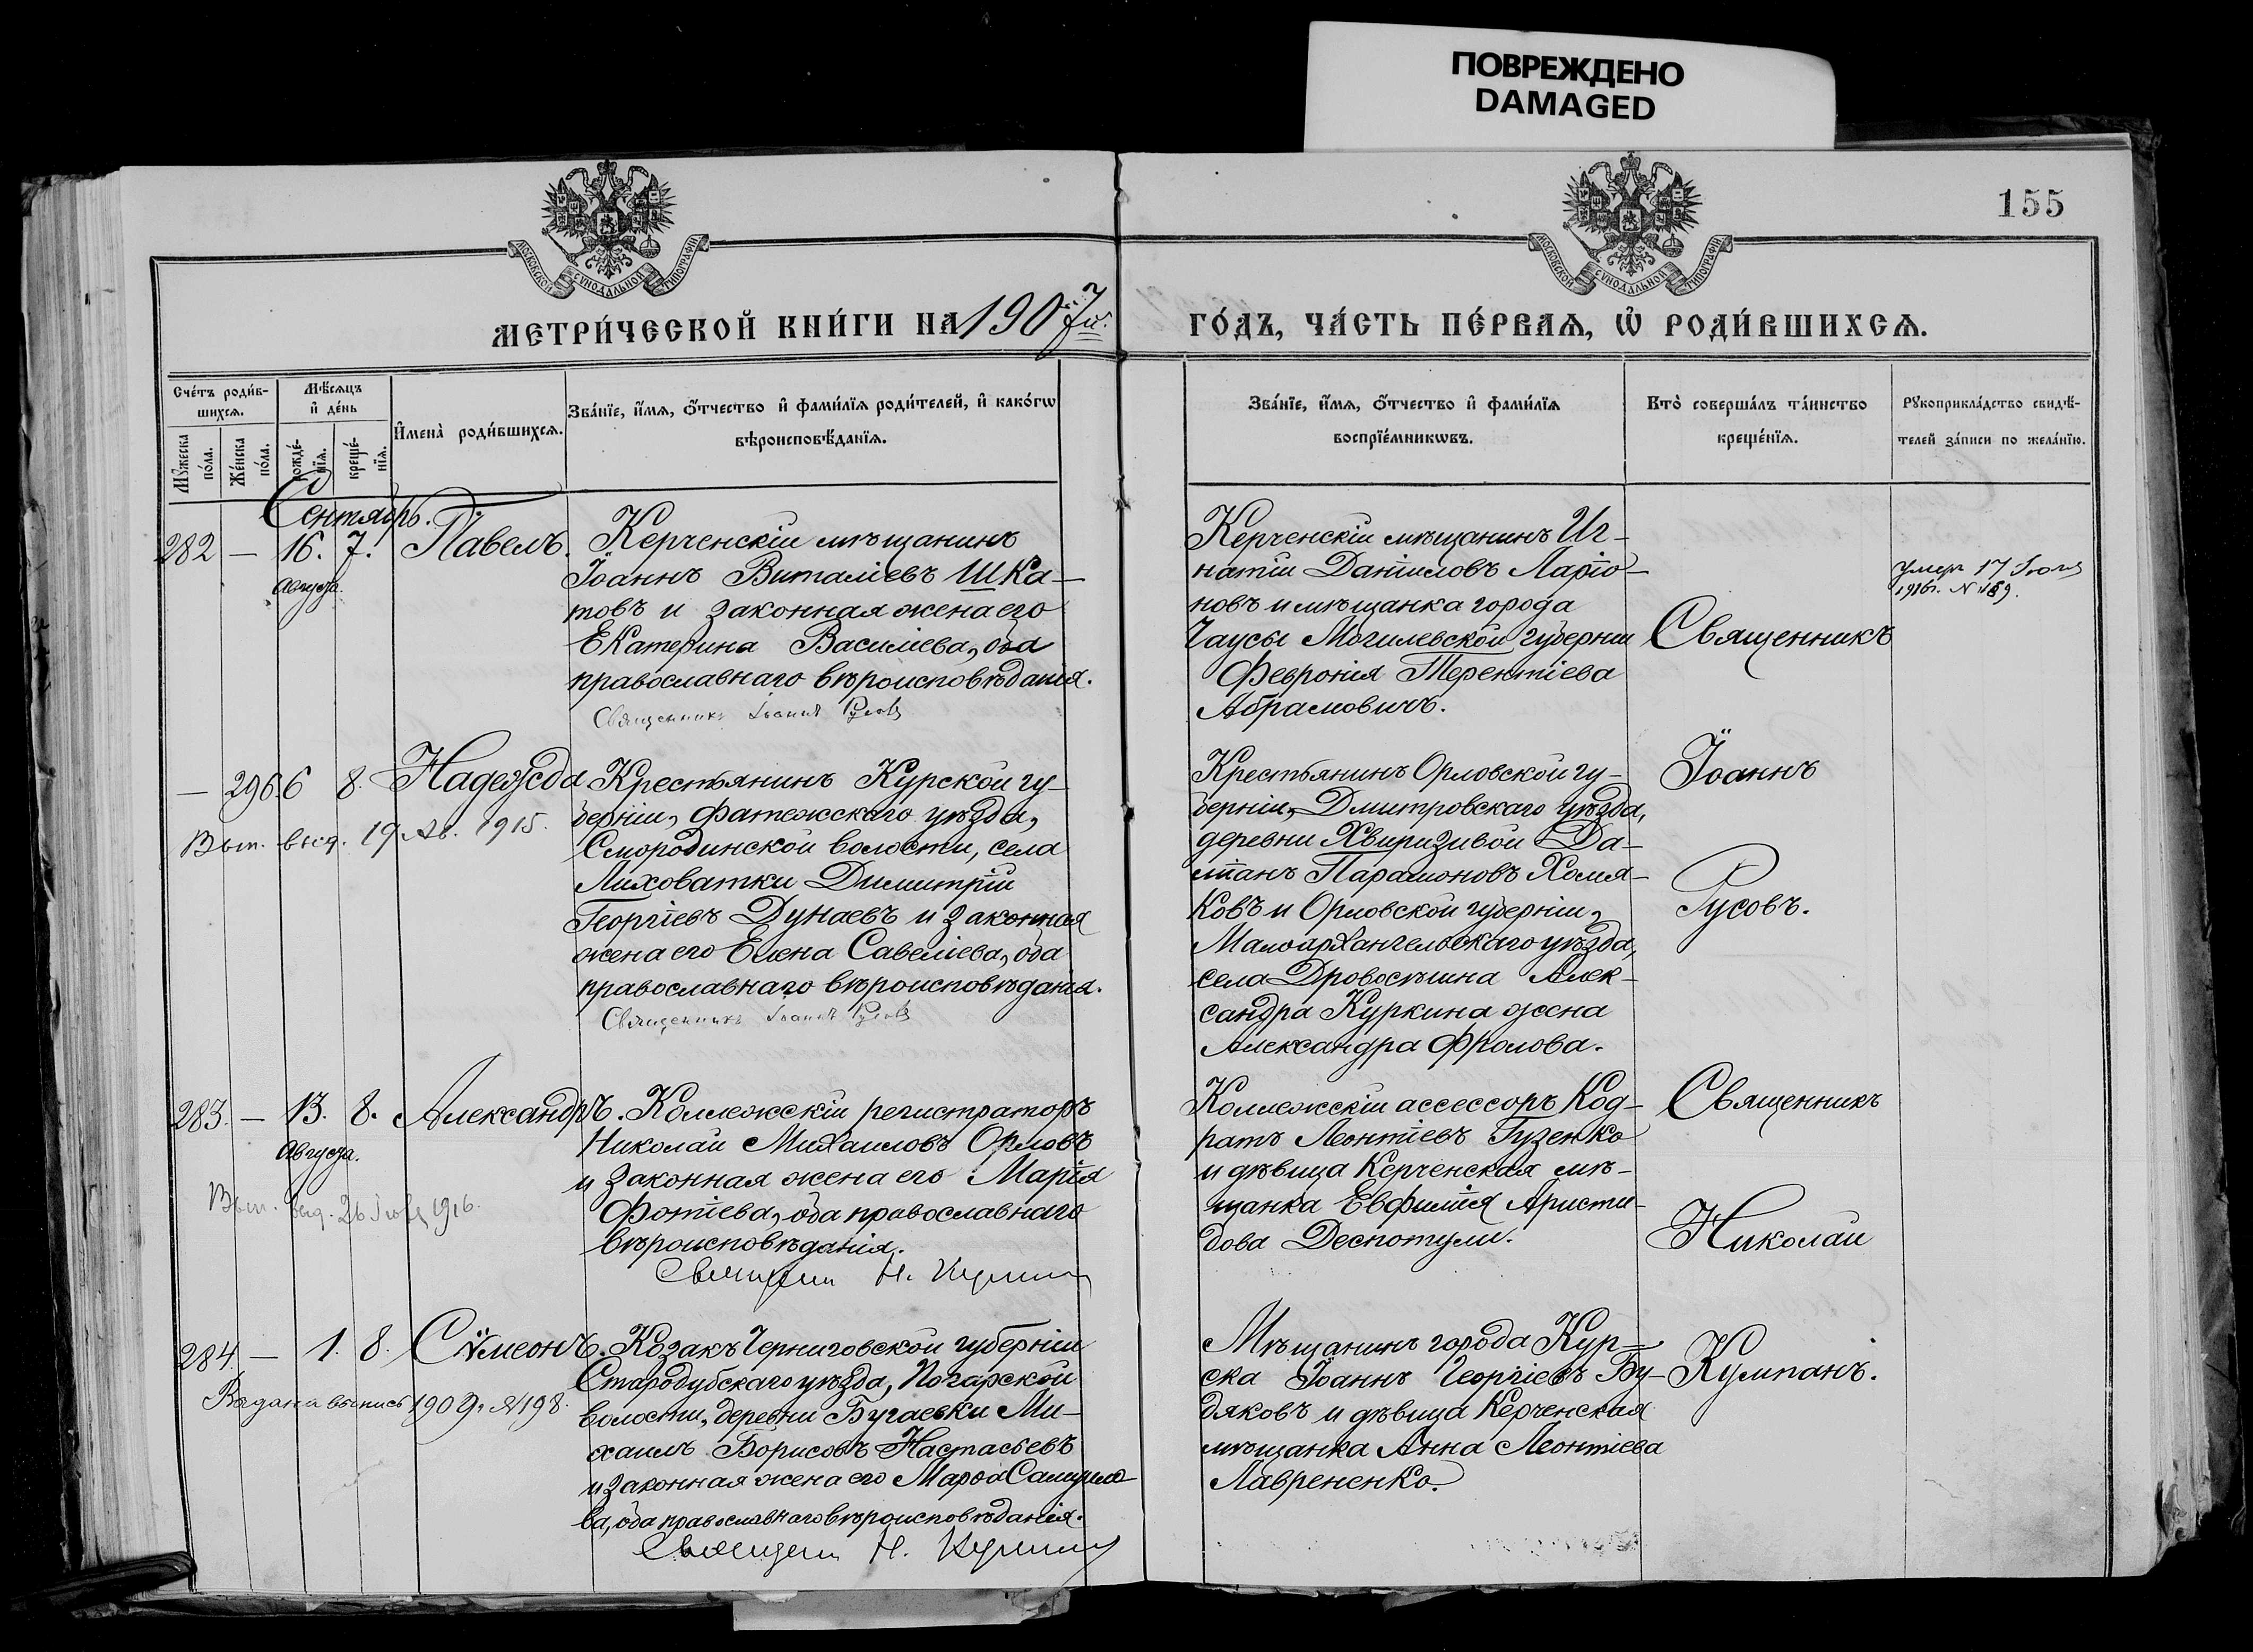 ПОВРЕЖДЕНО
DAMAGED
155
МОСКОВСКОЙ СѴНОДАЛЬНОЙ ТИПОГРАФІИ
МОСКОВСКОЙ СѴНОДАЛЬНОЙ ТИПОГРАФІИ
МЕТРИ́ЧЕСКОЙ КНИ́ГИ НА 1907й.
ГО́ДЪ, ЧА́СТЬ ПЕ́РВАѦ, Ѿ РОДИ́ВШИХСѦ.
Сче́тъ роди́в-
шихсѧ.
Мѣ́сѧцъ
и҆ де́нь
Му́жеска
по́ла.
Же́нска
по́ла.
рожде́-
нїѧ.
креще́-
нїѧ.
И҆мена̀ роди́вшихсѧ.
Зва́нїе, и҆́мѧ, ѻ҆́тчество и҆ фами́лїѧ роди́телей, и҆ како́гѡ
вѣроисповѣ́данїѧ.
Зва́нїе, и҆́мѧ, ѻ҆́тчество и҆ фами́лїѧ
воспрїе́мникѡвъ.
Кто̀ соверша́лъ та́инство
креще́нїѧ.
Рꙋкоприкла́дство свидѣ́-
телей за́писи по жела́нїю.
Сентябрь.
282 — 16. 7. Павелъ.
Августа.
Керченскій мѣщанинъ
Іоаннъ Виталіевъ Шка-
товъ и законная жена его
Екатерина Василіева, оба
православнаго вѣроисповѣданія.
Священникъ Іоаннъ Русовъ
Керченскій мѣщанинъ Иг-
натій Даніиловъ Ларіо-
новъ и мѣщанка города
Чаусы Могилевской губерніи
Февронія Терентіева
Абрамовичъ.
Священникъ
Іоаннъ
Русовъ.
умеръ 17 Іюля
1916г. N 189.
— 296 6 8. Надежда
Вып. выд. 19 Ав. 1915.
Крестьянинъ Курской гу-
берніи, Фатежскаго уѣзда,
Смородинской волости, села
Лиховатки Димитрій
Георгіевъ Дунаевъ и законная
жена его Елена Савеліева, оба
православнаго вѣроисповѣданія.
Священникъ Іоаннъ Русовъ
Крестьянинъ Орловской гу-
берніи, Дмитровскаго уѣзда,
деревни Хвиризивой Да-
міанъ Парамоновъ Хомя-
ковъ и Орловской губерніи,
Малоархангельскаго уѣзда,
села Дровосѣчина Алек-
сандра Куркина жена
Александра Фролова.
283. — 13. 8. Александръ.
Августа.
Вып. выд. 26 Іюля 1916.
Коллежскій регистраторъ
Николай Михаиловъ Орловъ
и законная жена его Марія
Фотіева, оба православнаго
вѣроисповѣданія.
Священ Н. Кумпан
Коллежскій ассессоръ Код-
ратъ Леонтіевъ Гузенко
и дѣвица Керченская мѣ-
щанка Евфимія Аристи-
дова Деспотули.
Священникъ
Николай
Кумпанъ.
284 — 1. 8. Сѵмеонъ.
Выдана выпись 1909г N198.
Козакъ Черниговской губерніи
Стародубскаго уѣзда, Погарской
волости, деревни Бугаевки Ми-
хаилъ Борисовъ Настасьевъ
и законная жена его Марѳа Самуило-
ва, оба православнаго вѣроисповѣданія.
Священ Н. Кумпан
Мѣщанинъ города Кур-
ска Іоаннъ Георгіевъ Бу-
дяковъ и дѣвица Керченская
мѣщанка Анна Леонтіева
Лаврененко.